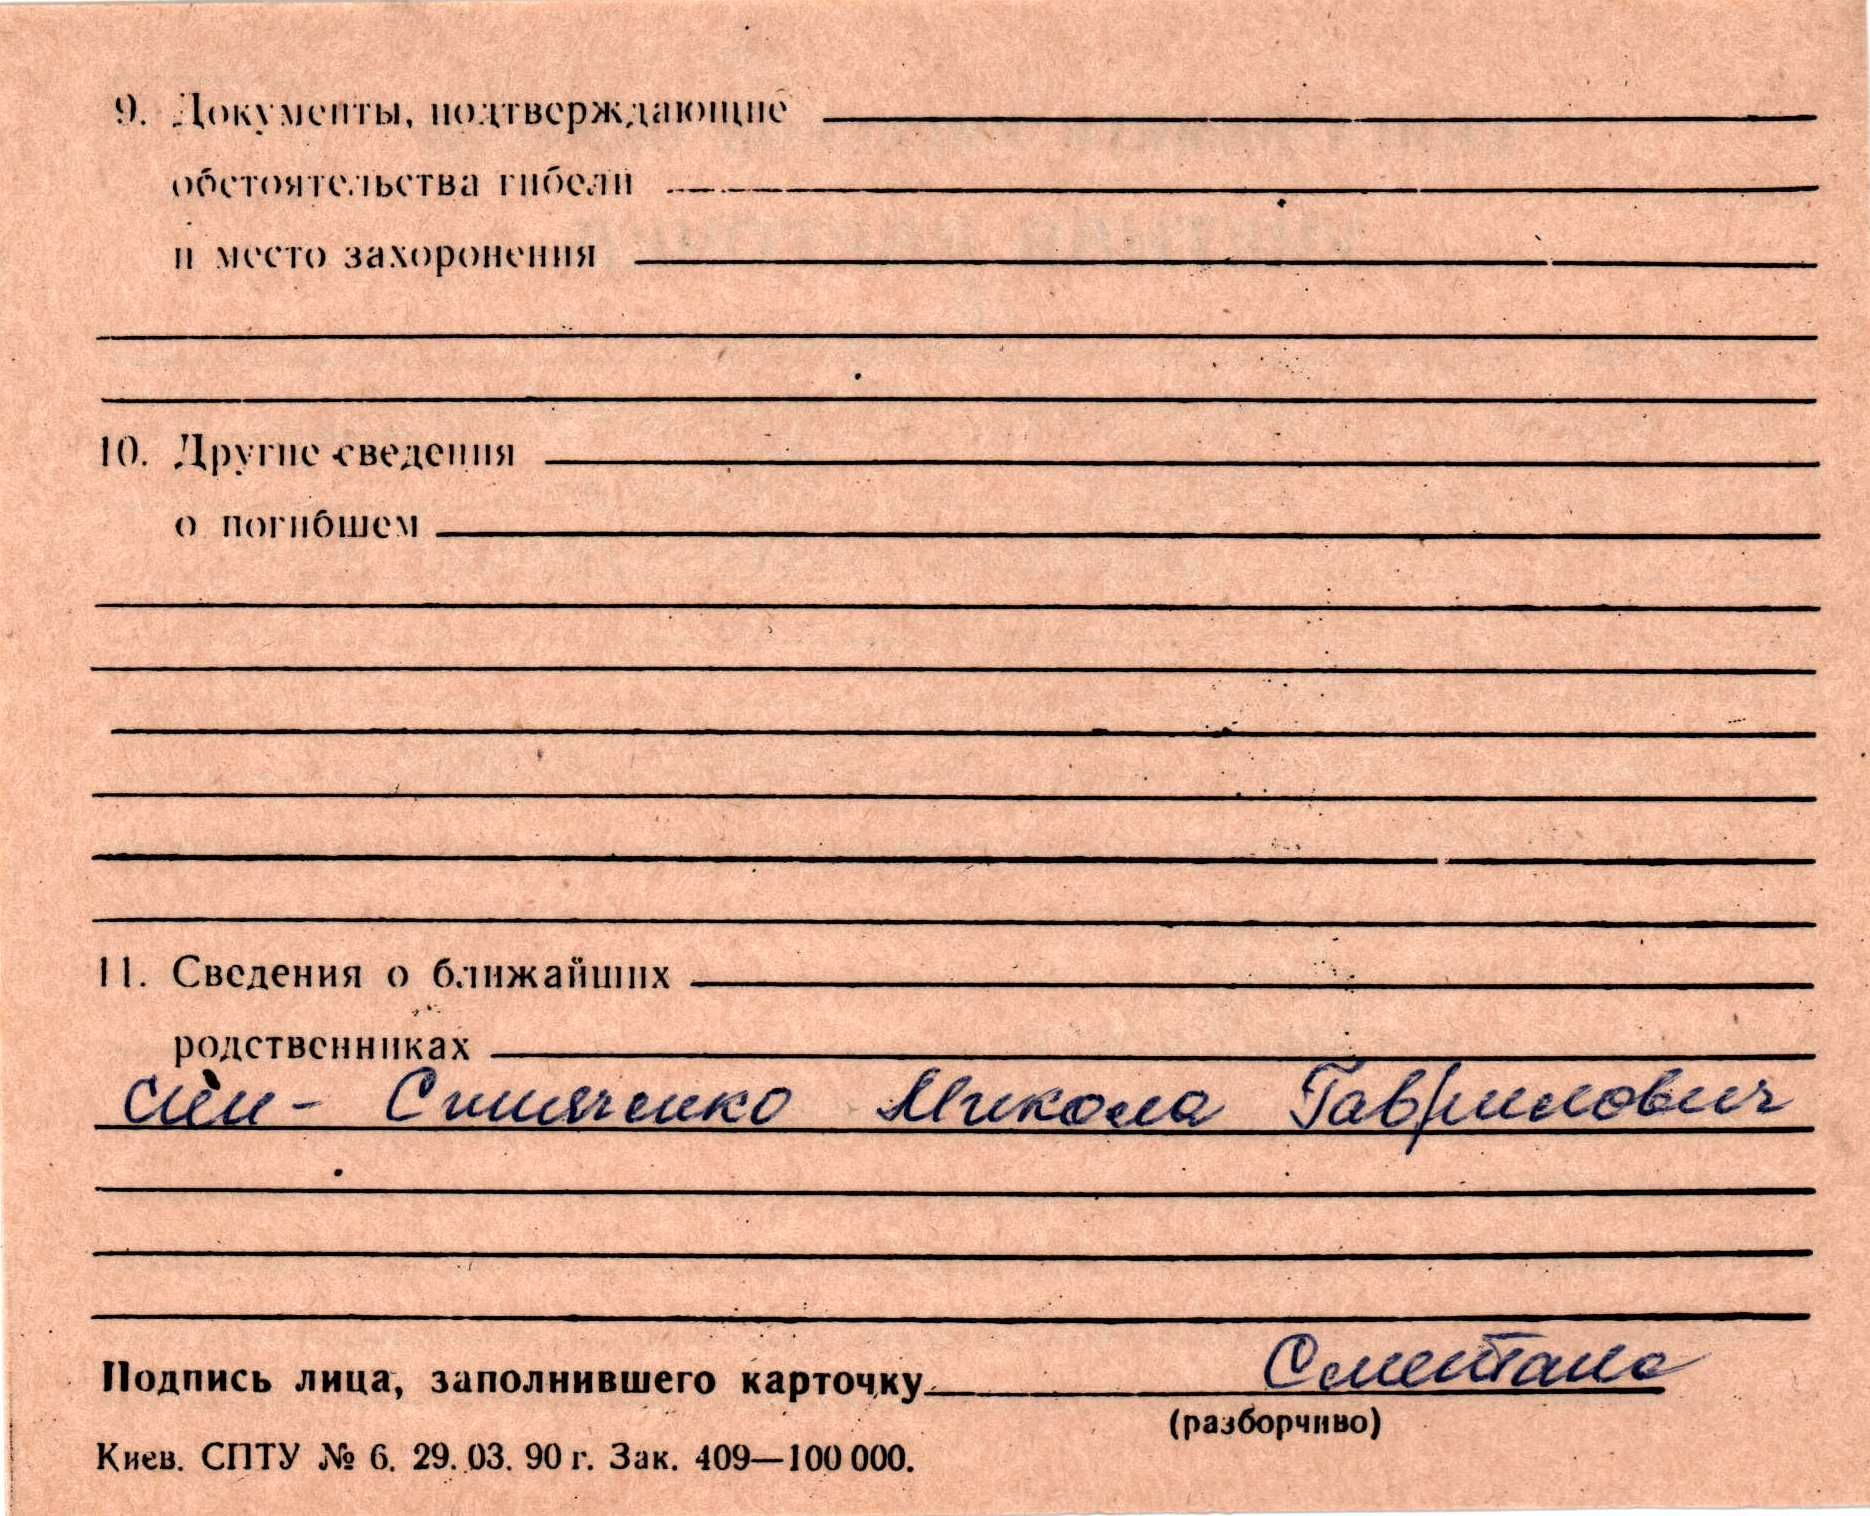 9. Документы, подтверждающие
обстоятельства гибели
и место захоронения
10. Другие сведения
о погибшем
11. Сведения о ближайших
родственниках
син - Микола Гаврилович
Подпись лица, заполнившего карточку Сметана
(разборчиво)
Киев. СПТУ № 6. 29. 03. 90 г. Зак. 409—100 000.